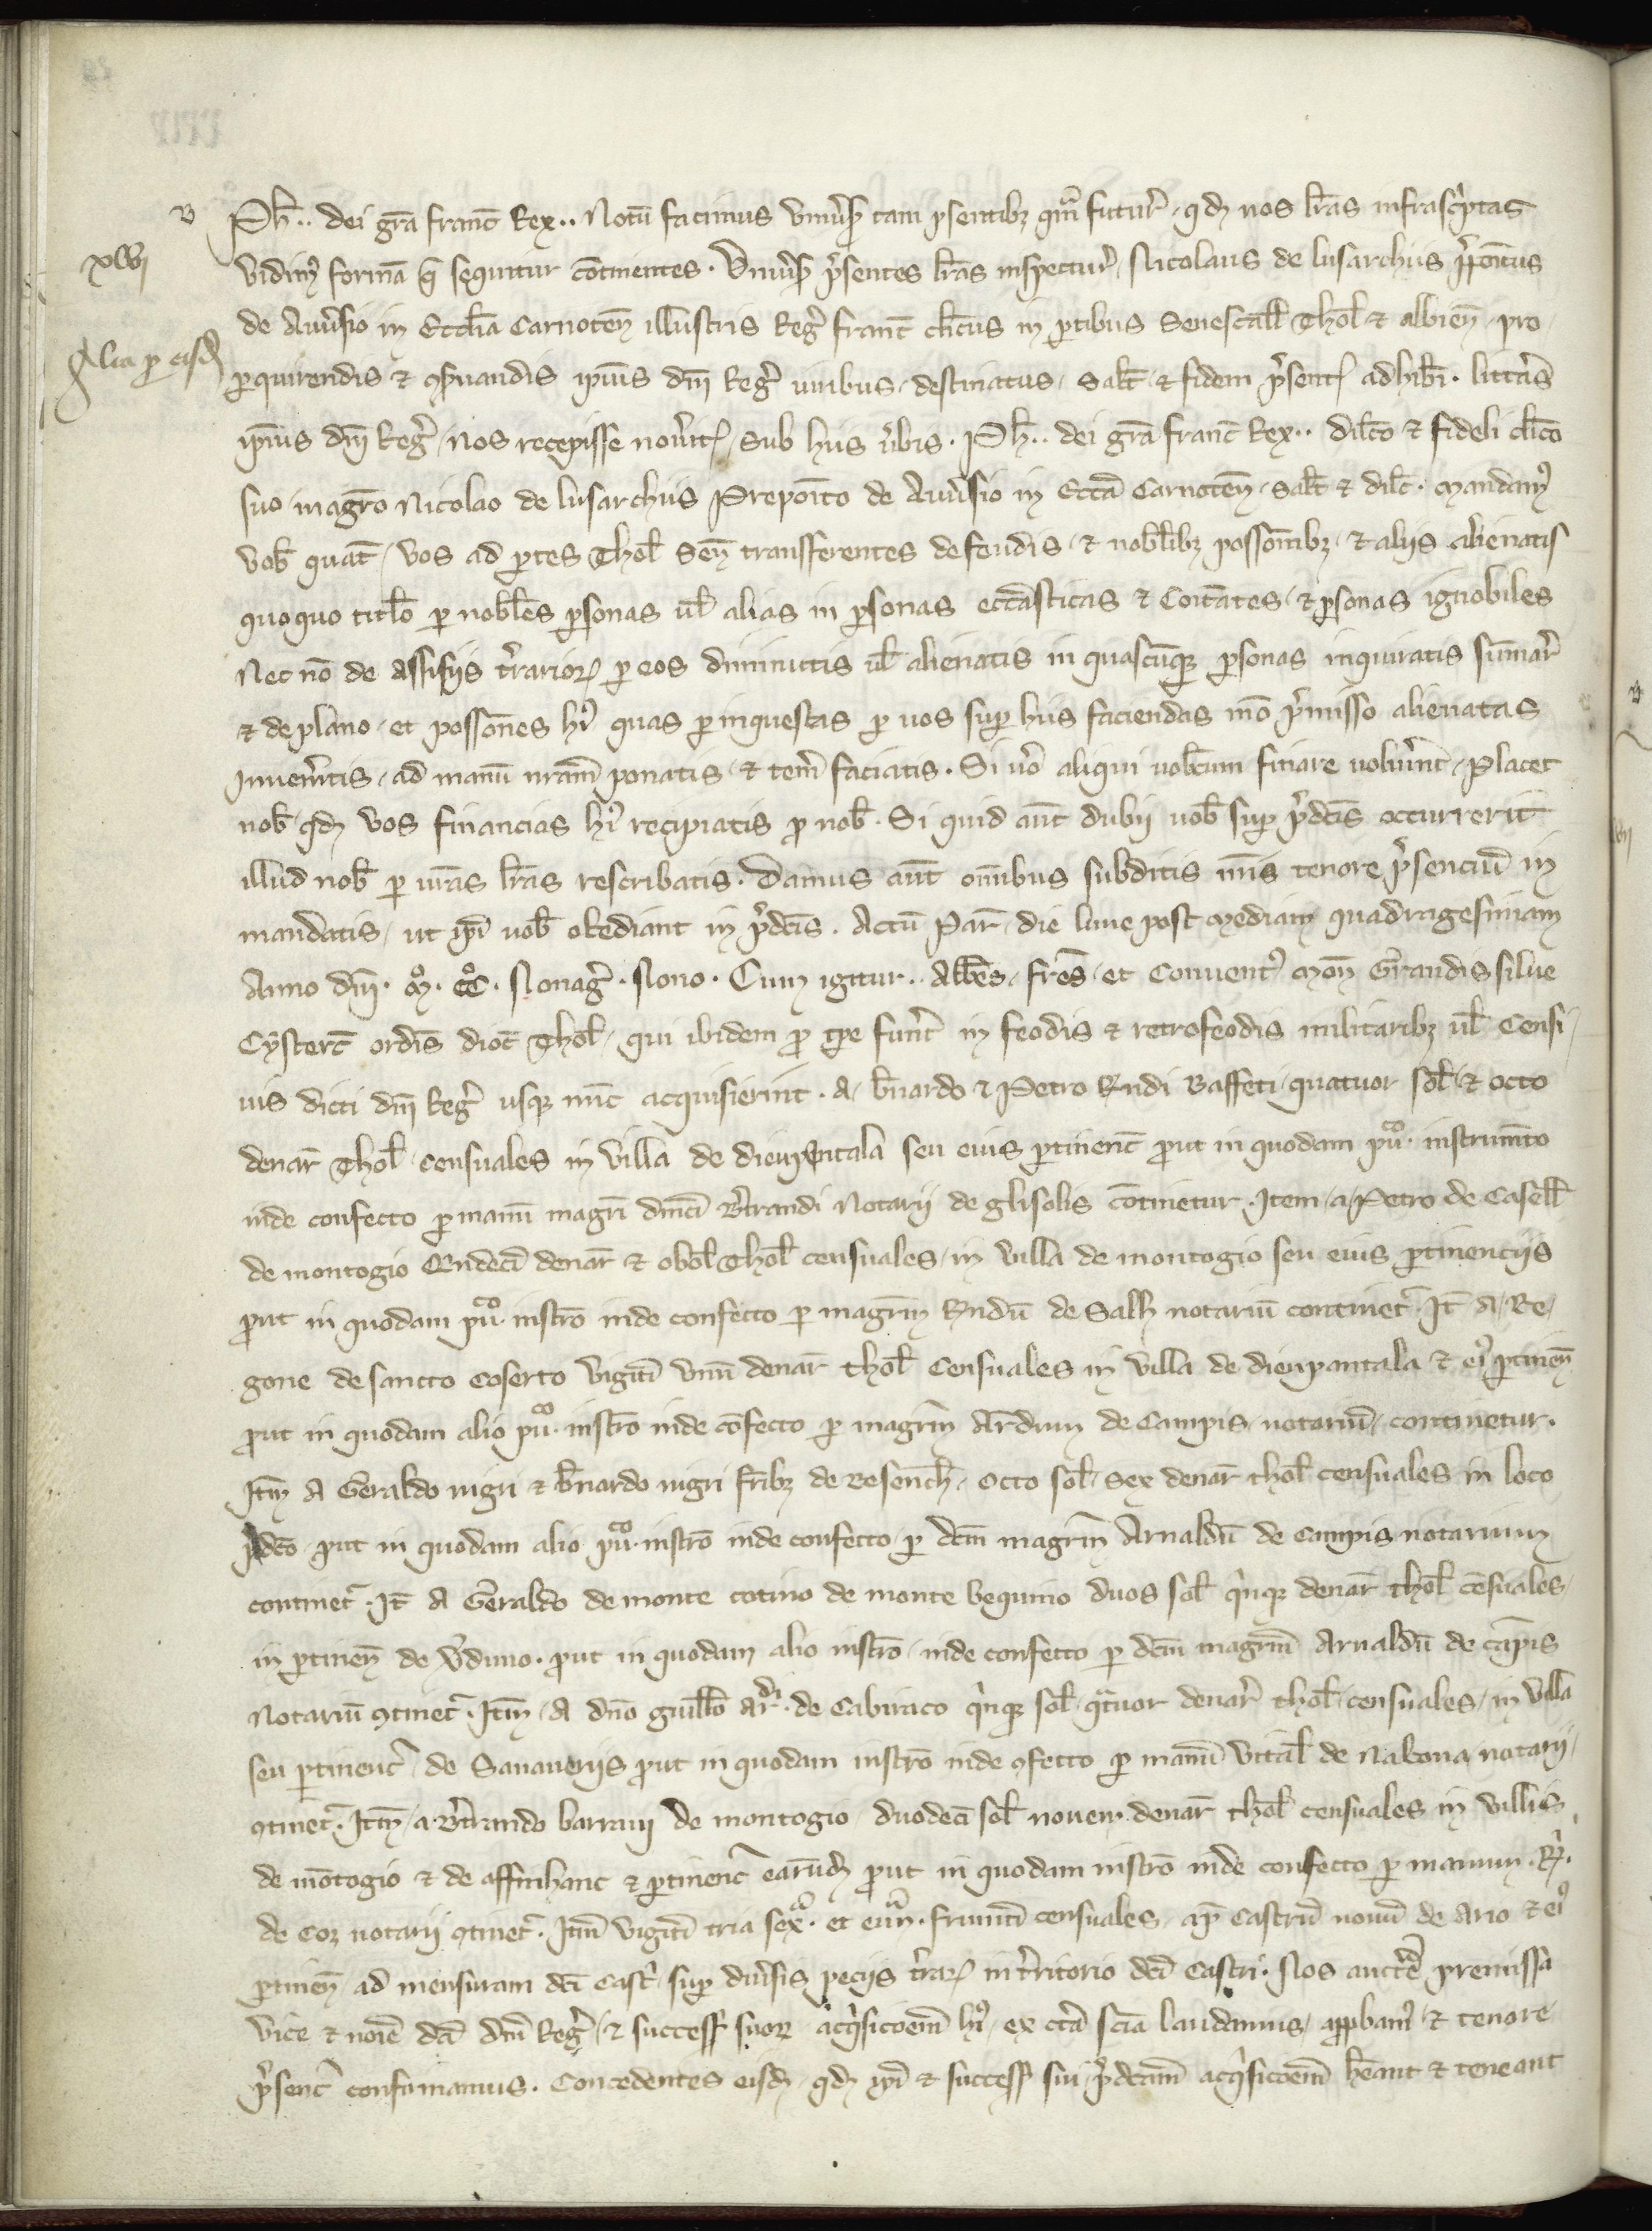 Ph̄.. dei gr̄a franc̄ Rex.. Notū facimus vniũsꝭ tam p̄sentibꝫ qm̄ futur̃ . qđ nos lr̄as infrasc̃ptas
vidimꝰ formā q̄ sequitur cōtinentes . Vniũsꝭ p̃sentes lr̄as inspectur̃ / Nicolaus de lusarchiis p̃poītus
de Auũsio in Ecclīa Carnoteñ illustris Reg̃ franc̄ cl̄icus in ꝑtibus Senescalł Thoł & albieñ / pro
ꝑquirendis & ꝯẜuandis ip̄ius dn̄i Reg̃ iuribus / destinatus / Salt̄ / & fidem p̃sentꝭ adhib̄i . litt̃as
ip̄ius dn̄i Reg̃ / nos recepisse noũitꝭ / sub hiis ũbis . Ph̄.. dei gr̄a franc̄ Rex.. dil̄co & fideli cl̄ico
suo magr̄o Nicolao de lusarchiis Prepoīto de Auũsio in Ecc̄a Carnoteñ . salt̄ & dil̄c . Mandamꝰ
vob̄ quat̄ / vos ad ꝑtes Thoł Señ transferentes de feudis / & nobl̄ibꝫ possōnibꝫ / & aliis alienatis
quoquo titl̄o ꝑ nobl̄es ꝑsonas ul̄ alias in ꝑsonas eccāsticas & Coītates / & ꝑsonas ignobiles
Nec nō de assisiis t̃rarioꝝ ꝑ eos diminutis ul̄ alienatis in quascūqꝫ ꝑsonas inquiratis sūmar̃
& de plano / et possōnes hꝰi quas ꝑ inquestas ꝑ uos suꝑ hiis faciendas mō p̃misso alienatas
Inuenĩtis / ad manū nr̄am ponatis / & tenēi faciatis . Si ũo aliqui uobc̄um finare uolũint / Placet
nob̄ / qđ vos financias hꝰi recipiatis ꝓ nob̄ . Si quid aūt dubii uob̄ suꝑ p̃dc̄is occurrerit
illud nob̄ ꝑ ur̄as lr̄as rescribatis . Damus aūt om̄ibus subditis nr̄is tenore p̃senciū in
mandatis / ut ip̄i uob̄ obediant in p̃dc̄is . Actū Par̃ / die lune post Mediam quadragesimam
Anno dn̄i . Mͦ. CCͦ. Nonag̃ . Nono . Cum igitur .. Abb̄es / fr̄es / et Conuentꝰ Moñ Grandissilue
Cysterc̄ ordīs dioc̄ Thoł / qui ibidem ꝓ tꝑe funt̄ in feodis & retrofeodis militaribꝫ ul̄ Censi/
uis dicti dn̄i Reg̃ usqꝫ nūc acquisierint . A / b̃nardo & Petro Rndi Baffeti quatuor soł & octo
denar̃ Thoł censuales in villa de diempentala seu eius ꝑtinenc̄ ꝓut in quodam puͨͦ . instrumēto
inde confecto ꝑ manū magr̄i dn̄ici B̃trandi Notarii de glisolis cōtinetur . Item / a / Petro de Caselł
de montogio Undeci denar̃ & obol Thoł censuales / in villa de montogio seu eius ꝑtinenciis
ꝓut in quodam puͨͦ . instr̄o inde confecto ꝑ magr̄m Rndū de Salh̄ notariū continet̃ . It̄ A / Re/
gone de sancto Coserto vigīti vnū denar̃ thoł Censuales in villa de dienpantala & eiꝰ ꝑtineñ
ꝓut in quodam alio puͨͦ . instr̄o inde cōfecto ꝑ magr̄m Ar̄dum de Campis / notariū / continetur .
Itm̄ A Geraldo nigri & b̃nardo nigri fr̄ibꝫ de Besench̄ / Octo soł / sex denar̃ thoł censuales in loco
p̃dc̄o ꝓut in quodam alio puͨͦ . instr̄o inde confecto / ꝑ dc̄m magr̄m Arnaldū de Campis notarium
continet̃ . It̄ A Geraldo de monte cotino de monte bequino duos soł qͥnqꝫ denar̃ thoł cēsuales /
in ꝑtineñ de ṽduno . ꝓut in quodam alio instr̄o / inde confecto ꝑ dc̄m magr̄m Arnaldū de cāpis
Notariū ꝯtinet̃ . Itm̄ / A dn̄o guill̄o Ar̄ͩͥ . de Cabiraco qͥnqꝫ soł . qͣtuor denar̃ thoł / censuales / in villa
seu ꝑtinenc̄ / de Sauaueriis ꝓut in quodam instr̄o inde ꝯfecto ꝑ manū vitał de Nabona / notarii /
ꝯtinet̃ . Itm̄ / a B̃trando barraui de montogio duodeci soł nouem . denar̃ thoł censuales in villis
de mōtogio & de affinhanc & ꝑtinenc̄ earūdꝫ ꝓut in quodam instr̄o inde confecto ꝑ manum . R̃ .
de Coꝫ notarii ꝯtinet̃ . Itm̄ vigīti tria sexͣͦ . et emīͣ . frumīti censuales . ap̄ Castrū nouū de Ario & eiꝰ
ꝑtineñ ad mensuram dc̄i Cast̃ / suꝑ diũsis peciis t̃raꝝ in t̃ritorio dc̄i Castri . Nos auctᵉ premissa
vice & noīe dc̄i dn̄i Reg̃ / & success̄ suoꝝ acqͥsicōem hꝰi / ex ct̄a sc̄ia laudamus / approbamꝰ / & tenore
p̃senc̄ confirmamus . Concedentes eisđ / qđ ip̄i & success̄ sui p̃dc̄am acqͥsicōem h̄eant & teneant
v
xlvi
Alia ꝑ eisđ